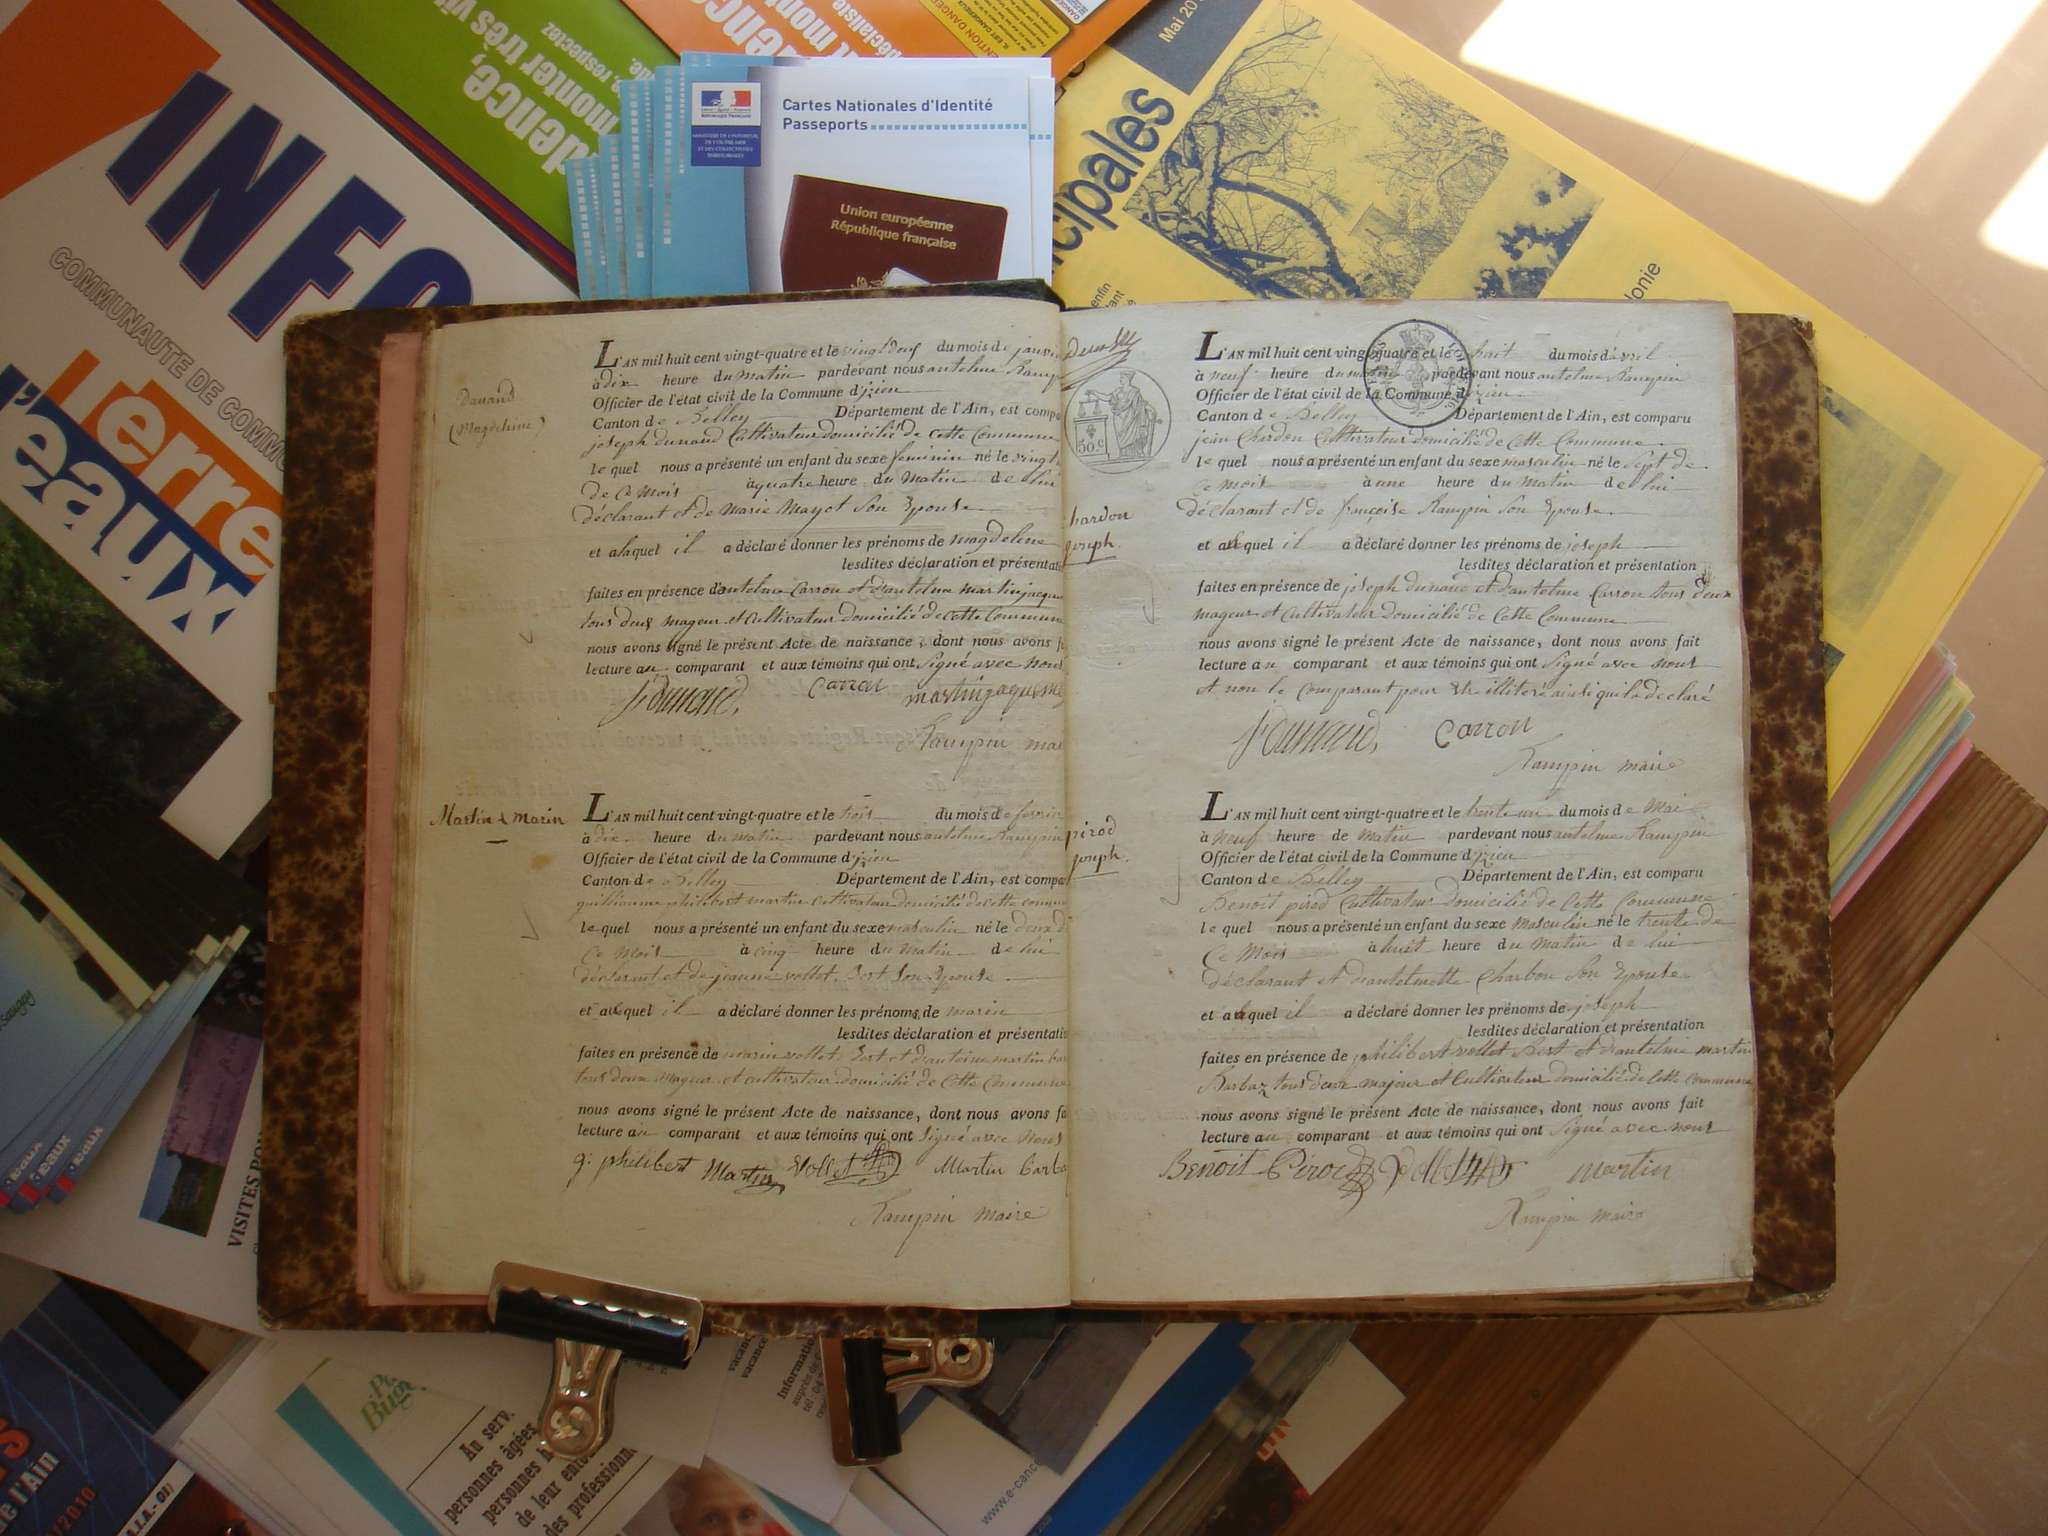 INFO
COMMUNAUTE DE COMMU
Terre
d'eaux
dence,
monter très vi
, respectez
Mai 20
cipales
lonie
Cartes Nationales d'Identité
Passeports
RÉPUBLIQUE FRANÇAISE
MINISTÈRE DE L'INTÉRIEUR,
DE L'OUTRE-MER
ET DES COLLECTIVITÉS
TERRITORIALES
Union européenne
République française
Dunand
(Magdeleine)
L'AN mil huit cent vingt-quatre et le vingt neuf du mois de janvie
à dix heure du matin pardevant nous antelme Rampin
Officier de l'état civil de la Commune d'izieu
Canton de Belley Département de l'Ain, est compa
joseph dunand Cultivateur domicilié de Cette Commune
le quel nous a présenté un enfant du sexe feminin né le vingt
de Ce Mois à quatre heure du Matin de lui
déclarant et de Marie Mayot Son Epouse
et alaquel il a déclaré donner les prénoms de Magdeleine
lesdites déclaration et présentatio
faites en présence d'antelme Carron et d'antelme martinjacque
tous deux mageur et Cultivateur domicilié de Cette Commune
nous avons signé le présent Acte de naissance, dont nous avons fa
lecture au comparant et aux témoins qui ont Signé avec Nous
j. dunand, Carron martinjaque
Rampin mai
Martin Marin
L'AN mil huit cent vingt-quatre et le trois du mois de fevrier
à dix heure du matin pardevant nous antelme Rampin
Officier de l'état civil de la Commune d'izieu
Canton de Belley Département de l'Ain, est compa
guillieaume philibert martin Cultivateur domicilié de Cette commune
le quel nous a présenté un enfant du sexe masculin né le deux de
Ce Mois à cinq heure du Matin de lui
déclarant et de jeanne vollet Bert Son Epouse
et auquel il a déclaré donner les prénoms de marin
lesdites déclaration et présentatio
faites en présence de marin vollet Bert et d'antoine martin bar
tous deux mageur et cultivateur domicilié de Cette Commune
nous avons signé le présent Acte de naissance, dont nous avons fa
lecture au comparant et aux témoins qui ont Signé avec Nous
g. philibert Martin vollet Martin barba
Rampin Maire
50.c
hardon
joseph.
L'AN mil huit cent vingt-quatre et le huit du mois d'avril
à neuf heure du matin pardevant nous antelme Rampin
Officier de l'état civil de la Commune d'izieu
Canton de Belley Département de l'Ain, est comparu
jean Chardon Cultivateur domicilié de Cette Commune
le quel nous a présenté un enfant du sexe masculin né le Sept de
Ce mois à une heure du Matin de lui
déclarant et de françoise Rampin Son Epouse
et auquel il a déclaré donner les prénoms de joseph
lesdites déclaration et présentation
faites en présence de joseph dunand et d'antelme Carron tous deux
mageur et Cultivateur domicilié de Cette Commune
nous avons signé le présent Acte de naissance, dont nous avons fait
lecture au comparant et aux témoins qui ont Signé avec nous
et non le Comparant pour etre illiteré ainsi qui la declaré
j. dunand, Carron
Rampin maire
pirod
joseph.
L'AN mil huit cent vingt-quatre et le trente un du mois de Mai
à Neuf heure de Matin pardevant nous antelme Rampin
Officier de l'état civil de la Commune d'izieu
Canton de Belley Département de l'Ain, est comparu
Benoit pirod Cultivateur domicilié de Cette Commune
le quel nous a présenté un enfant du sexe masculin né le trente de
Ce Mois à huit heure du Matin de lui
déclarant et d'antelmette Charbon Son Epouse
et auquel il a déclaré donner les prénoms de joseph
lesdites déclaration et présentation
faites en présence de philibert vollet Bert et d'antelme martin
Barbaz tous deux majeur et Cultivateur domicilié de Cette commune
nous avons signé le présent Acte de naissance, dont nous avons fait
lecture au comparant et aux témoins qui ont Signé avec nous
Benoit Pirod martin
Rampin Maire
eaux
VISITES
An serv
personnes âgées
personnes
de leur ento
des professionn
vacan
vacance
Information
auprès de
www.e-canc
e l'Ain
/2010